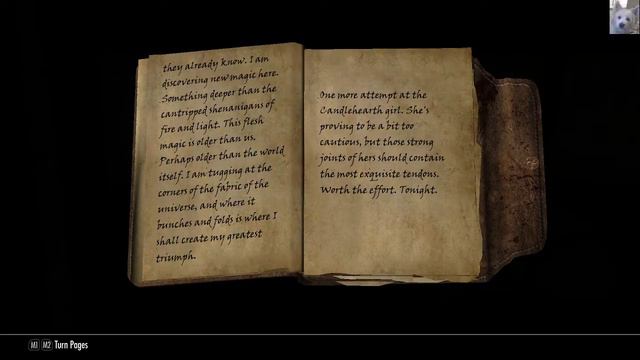 they already know. I am
discovering new magic here.
Something deeper than the
cantripped shenanigans of
fire and light. This flesh
magic is older than us.
Perhaps older than the world
itself. I am tugging at the
corners of the fabric of the
universe, and where it
bunches and folds is where I
shall create my greatest
triumph.
One more attempt at the
Candlehearth girl. She's
proving to be a bit too
cautious, but those strong
joints of hers should contain
the most exquisite tendons.
Worth the effort. Tonight.
M1 M2 Turn Pages